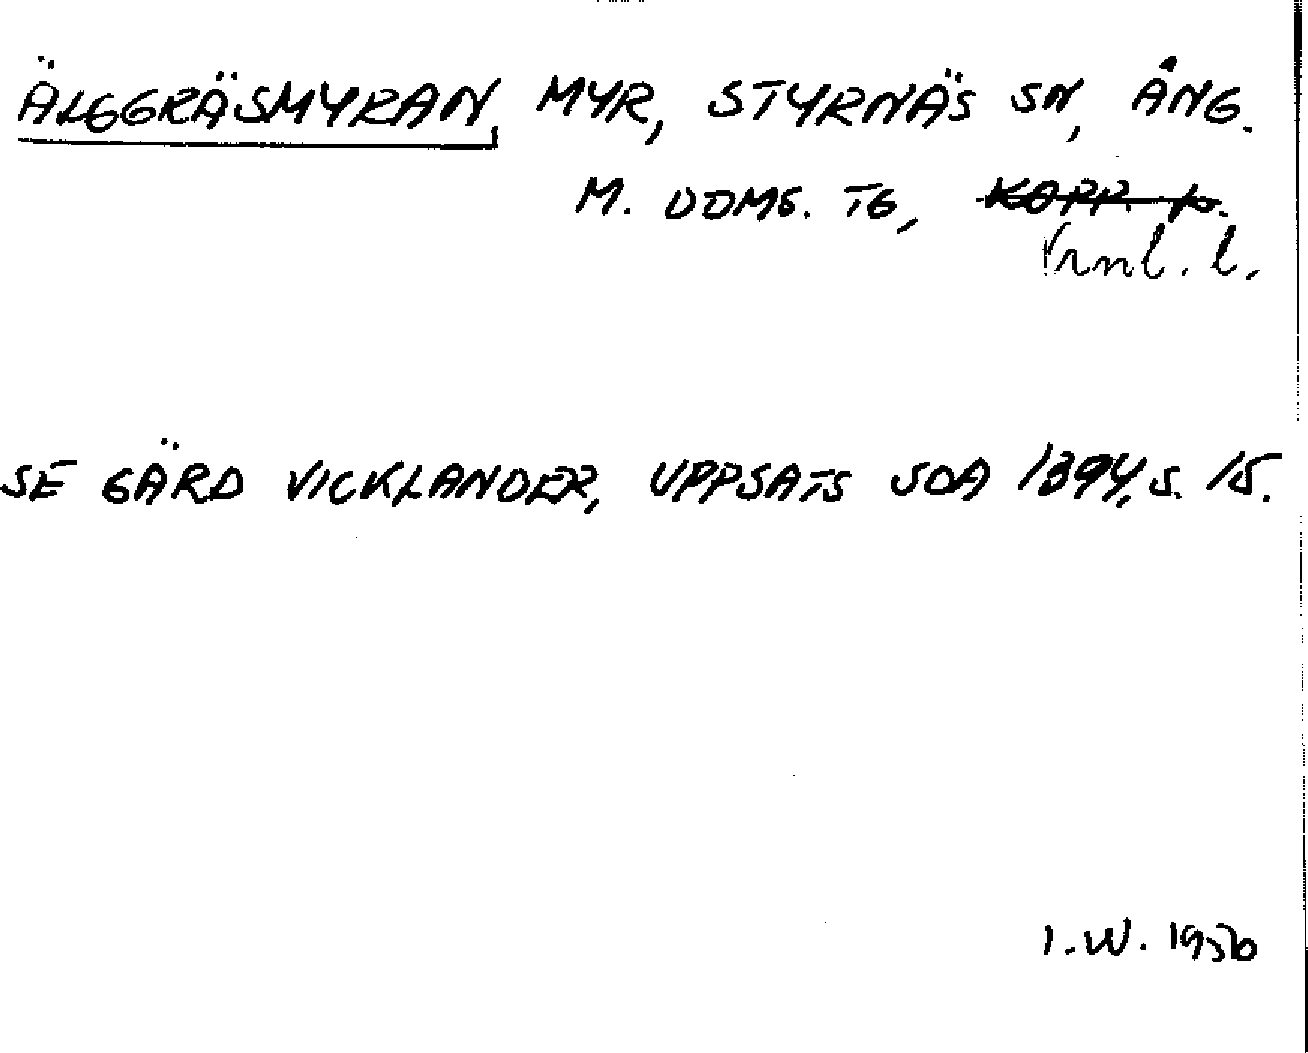 ÄLGGRÄSMYRAN, MYR, STYRNÄS SN, ÅNG.
M. DOMS. TG, KOPP. l.
Vrnl. l.
SE GÄRD VICKLANDER, UPPSATS SOA 1394, S. 15.
I.W. 1956